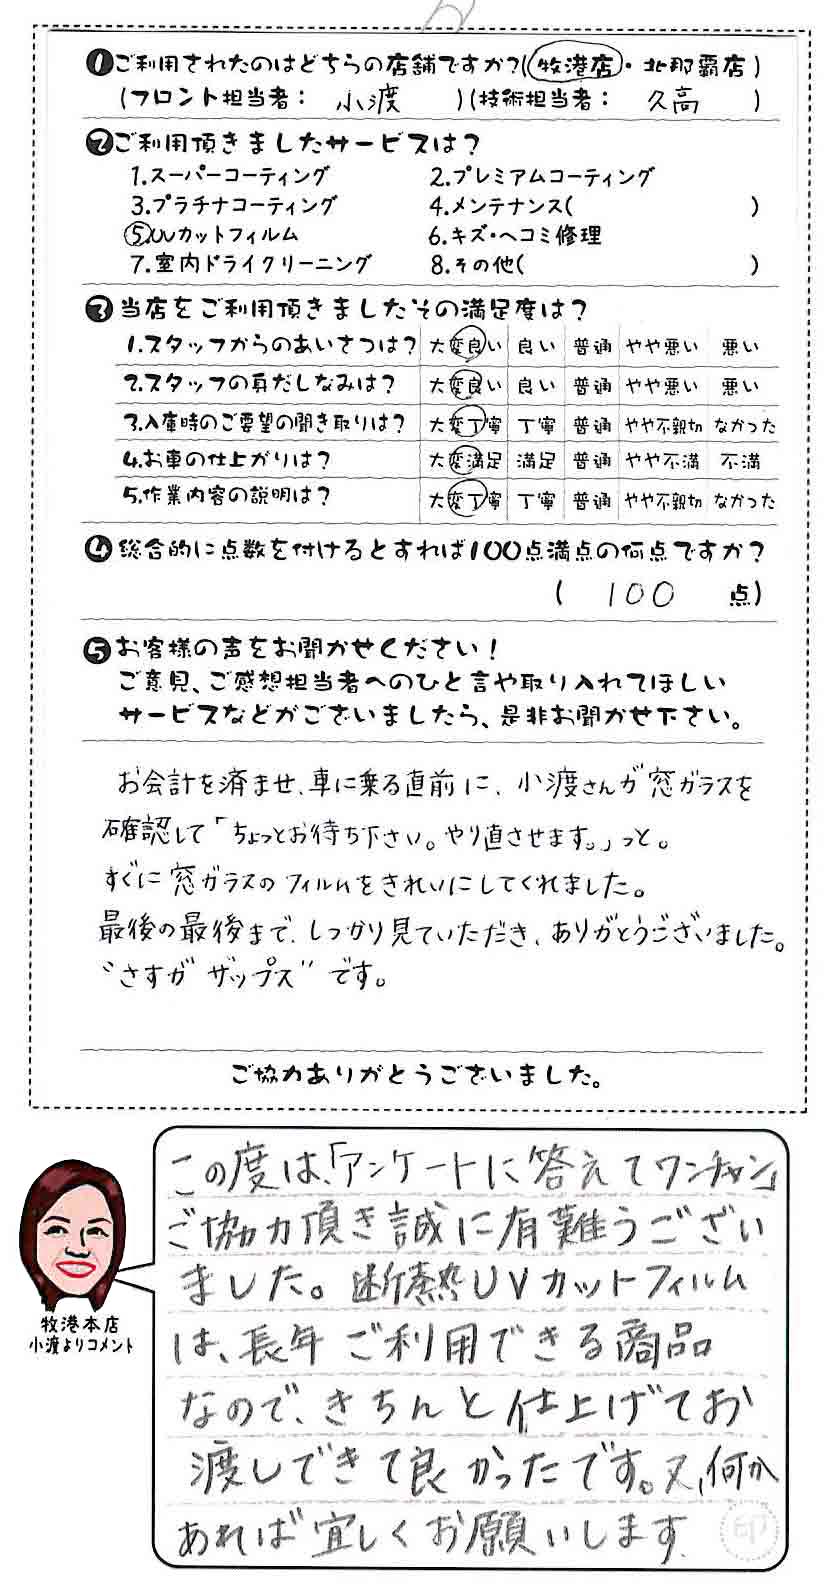 ❶ご利用されたのはどちらの店舗ですか?(牧港店・北那覇店)
(フロント担当者: 小渡 )(技術担当者: 久高 )
❷ご利用頂きましたサービスは?
1.スーパーコーティング 2.プレミアムコーティング
3.プラチナコーティング 4.メンテナンス( )
⑤UVカットフィルム 6.キズ・ヘコミ修理
7.室内ドライクリーニング 8.その他( )
❸当店をご利用頂きましたその満足度は?
1.スタッフからのあいさつは? 大変良い 良い 普通 やや悪い 悪い
2.スタッフの身だしなみは? 大変良い 良い 普通 やや悪い 悪い
3.入庫時のご要望の聞き取りは? 大変丁寧 丁寧 普通 やや不親切 なかった
4.お車の仕上がりは? 大変満足 満足 普通 やや不満 不満
5.作業内容の説明は? 大変丁寧 丁寧 普通 やや不親切 なかった
❹総合的に点数を付けるとすれば100点満点の何点ですか?
( 100 点)
❺お客様の声をお聞かせください!
ご意見、ご感想担当者へのひと言や取り入れてほしい
サービスなどがございましたら、是非お聞かせ下さい。
お会計を済ませ、車に乗る直前に、小渡さんが窓ガラスを
確認して「ちょっとお待ち下さい。やり直させます。」っと。
すぐに窓ガラスのフィルムをきれいにしてくれました。
最後の最後まで、しっかり見ていただき、ありがとうございました。
“さすが ザップス”です。
ご協力ありがとうございました。
この度は、「アンケートに答えてワンチャン」
ご協力頂き誠に有難うござい
ました。断熱UVカットフィルム
は、長年ご利用できる商品
なので、きちんと仕上げてお
渡しできて良かったです。又、何か
あれば宜しくお願いします.
印
牧港本店
小渡よりコメント